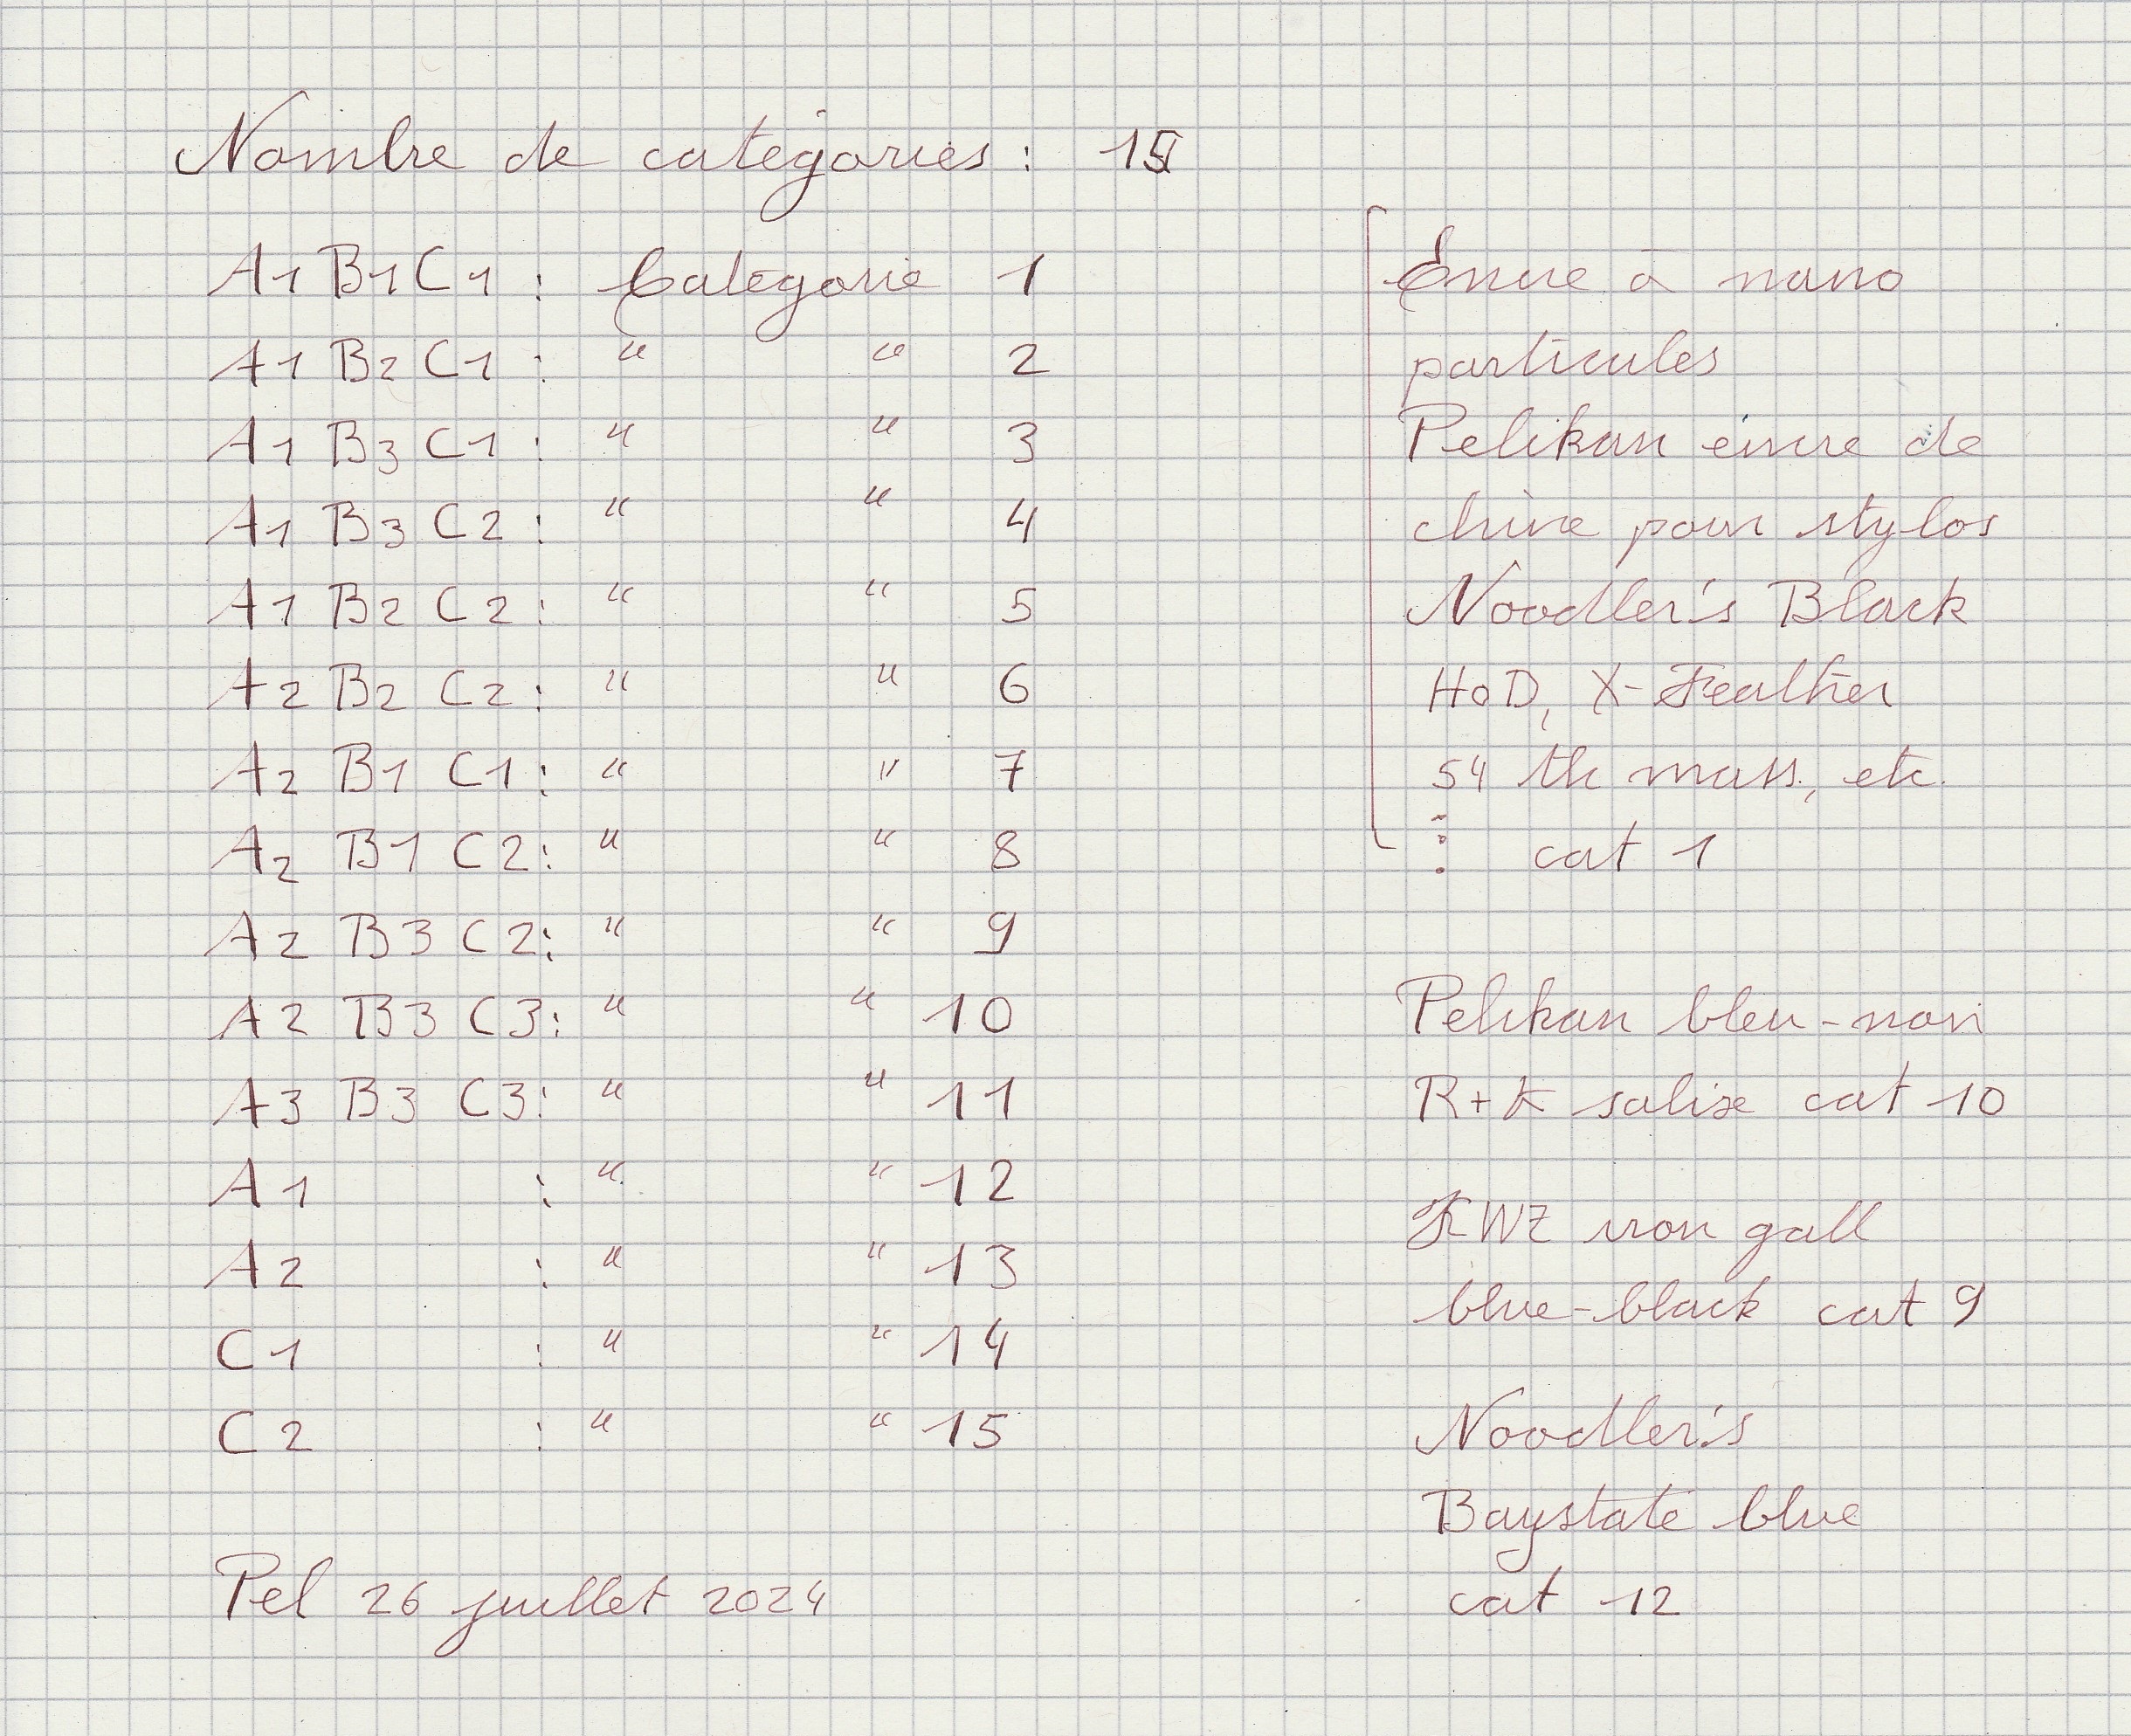 Nombre de catégories : 15
A1 B1 C1 : Catégorie 1
A1 B2 C1 : " " 2
A1 B3 C1 : " " 3
A1 B3 C2 : " " 4
A1 B2 C2 : " " 5
A2 B2 C2 : " " 6
A2 B1 C1 : " " 7
A2 B1 C2 : " " 8
A2 B3 C2 : " " 9
A2 B3 C3 : " " 10
A3 B3 C3 : " " 11
A1 : " " 12
A2 : " " 13
C1 : " " 14
C2 : " " 15
Pel 26 juillet 2024
Encre à nano
particules
Pelikan encre de
chine pour stylos
Noodler's Black
HoD, X-Feather
54 th mass, etc.
: cat 1
Pelikan bleu-noir
R+K salix cat 10
KWZ iron gall
blue-black cat 9
Noodler's
Baystate blue
cat 12